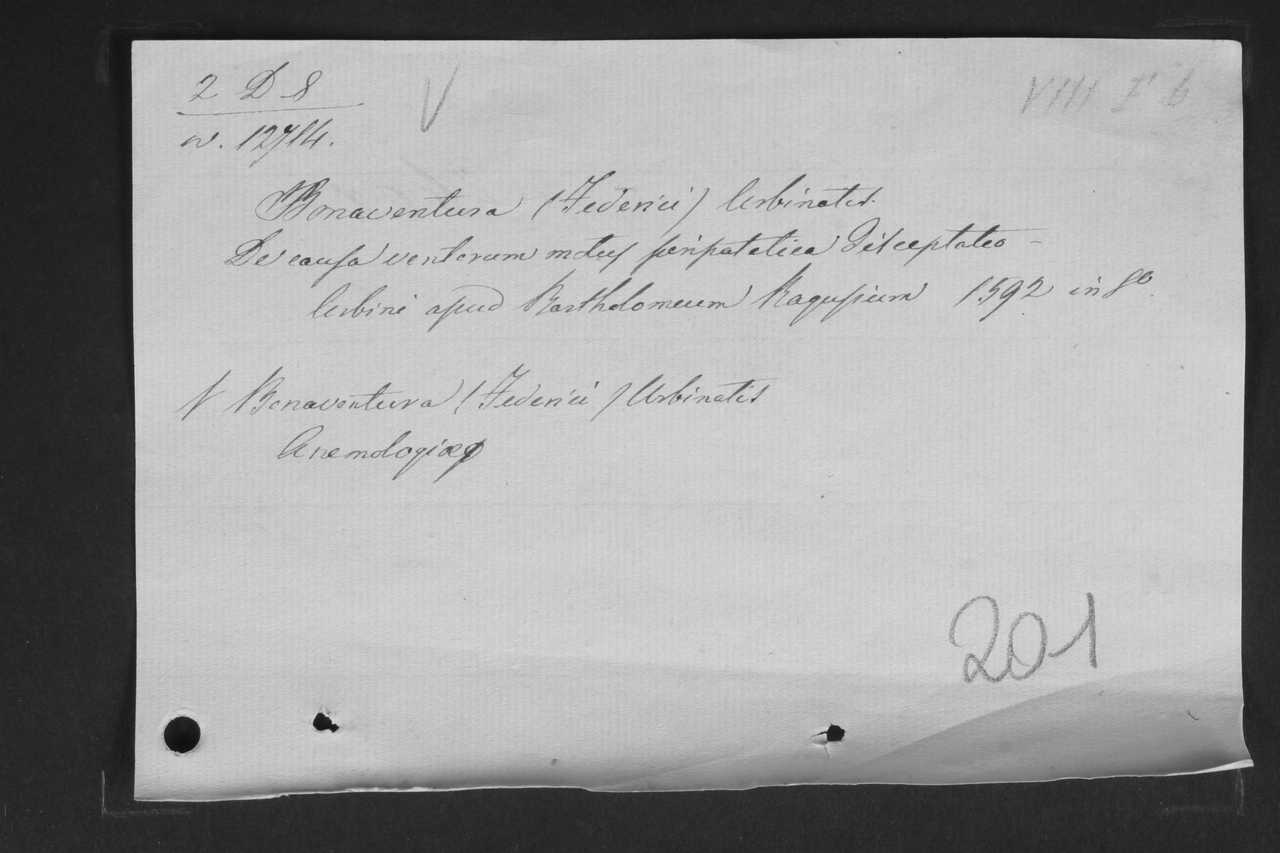 2 D 8
V
VIII F b
n. 12714.
Bonaventura (Federici) Urbinatis.
De causa ventorum motus peripatetica Disceptatio -
Urbini apud Bartholomeum Ragusium 1592 in 8o.
V Bonaventura (Federici) Urbinatis
Anemologiae
201